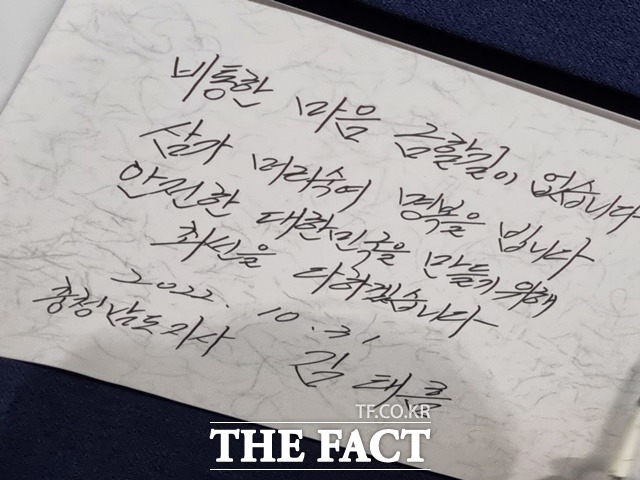 비통한 마음 금할길이 없습니다
삼가 머리숙여 명복을 빕니다
안전한 대한민국을 만들기 위해
최선을 다하겠습니다
2022. 10. 31
충청남도지사 김태흠
TF.CO.KR
THE FACT